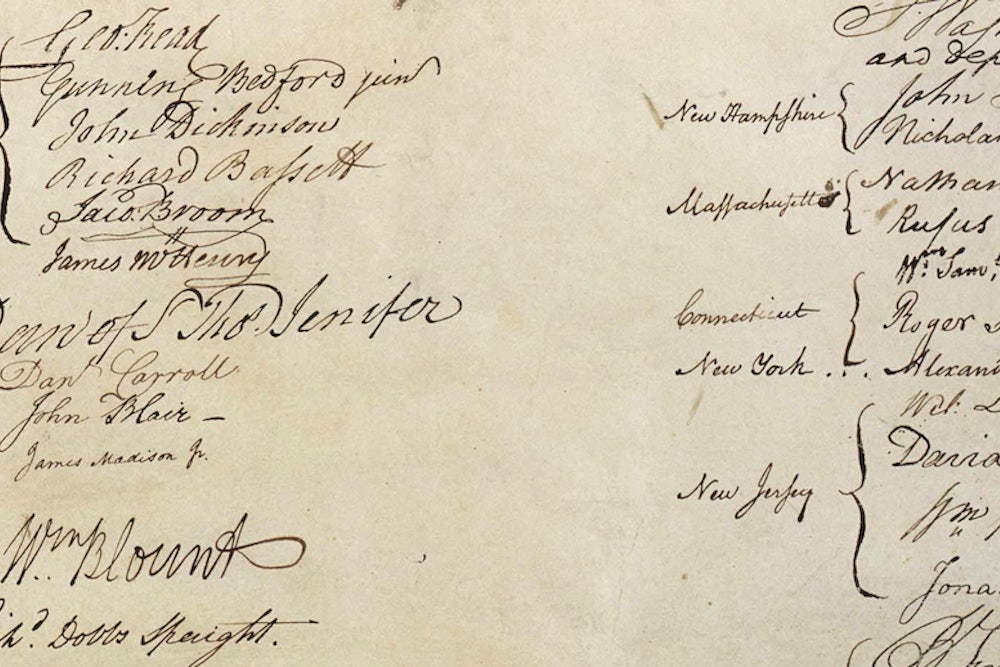 Geo: Read
Gunning Bedford jun
John Dickinson
Richard Bassett
Jaco: Broom
James McHenry
Dan of St Thos. Jenifer
Danl Carroll
John Blair –
James Madison Jr.
Wm Blount
Richd. Dobbs Spaight.
and dep
New Hampshire
John
Nicholas
Massachusetts
Nathan
Rufus
Wm. Saml.
Connecticut
Roger
New York . . .
Alexan
New Jersey
Wil: L
David
Wm
Jona